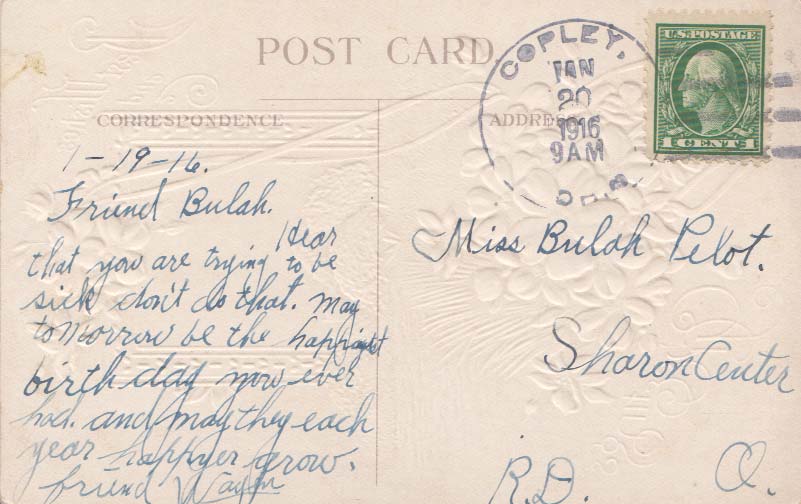 POST CARD
COPLEY,
JAN
20
1916
9AM
OHIO
U.S. POSTAGE
1 CENT 1
CORRESPONDENCE
ADDRESS
1-19-16.
Friend Bulah.
Hear
that you are trying to be
sick don't do that. May
tomorrow be the happiest
birthday you ever
had. and may they each
year happyer grow.
friend
Miss Bulah Pelot.
Sharon Center
R.D. O.